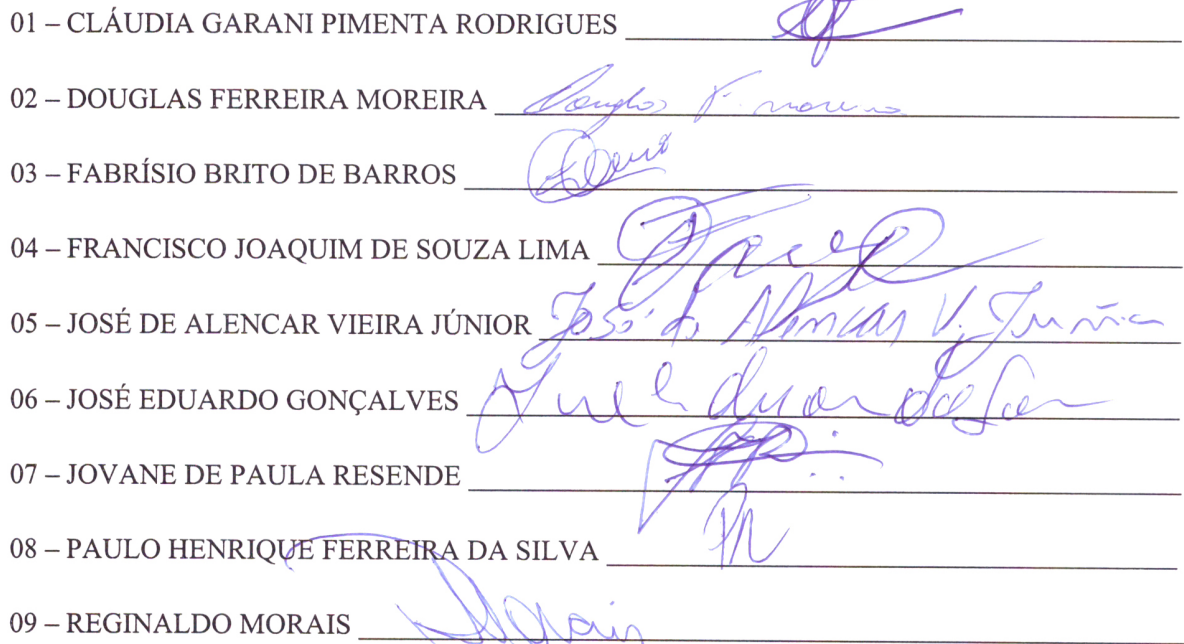 01 – CLÁUDIA GARANI PIMENTA RODRIGUES
02 – DOUGLAS FERREIRA MOREIRA Douglas F. moreira
03 – FABRÍSIO BRITO DE BARROS
04 – FRANCISCO JOAQUIM DE SOUZA LIMA
05 – JOSÉ DE ALENCAR VIEIRA JÚNIOR José de Alencar V. Júnior
06 – JOSÉ EDUARDO GONÇALVES
07 – JOVANE DE PAULA RESENDE
08 – PAULO HENRIQUE FERREIRA DA SILVA
09 – REGINALDO MORAIS